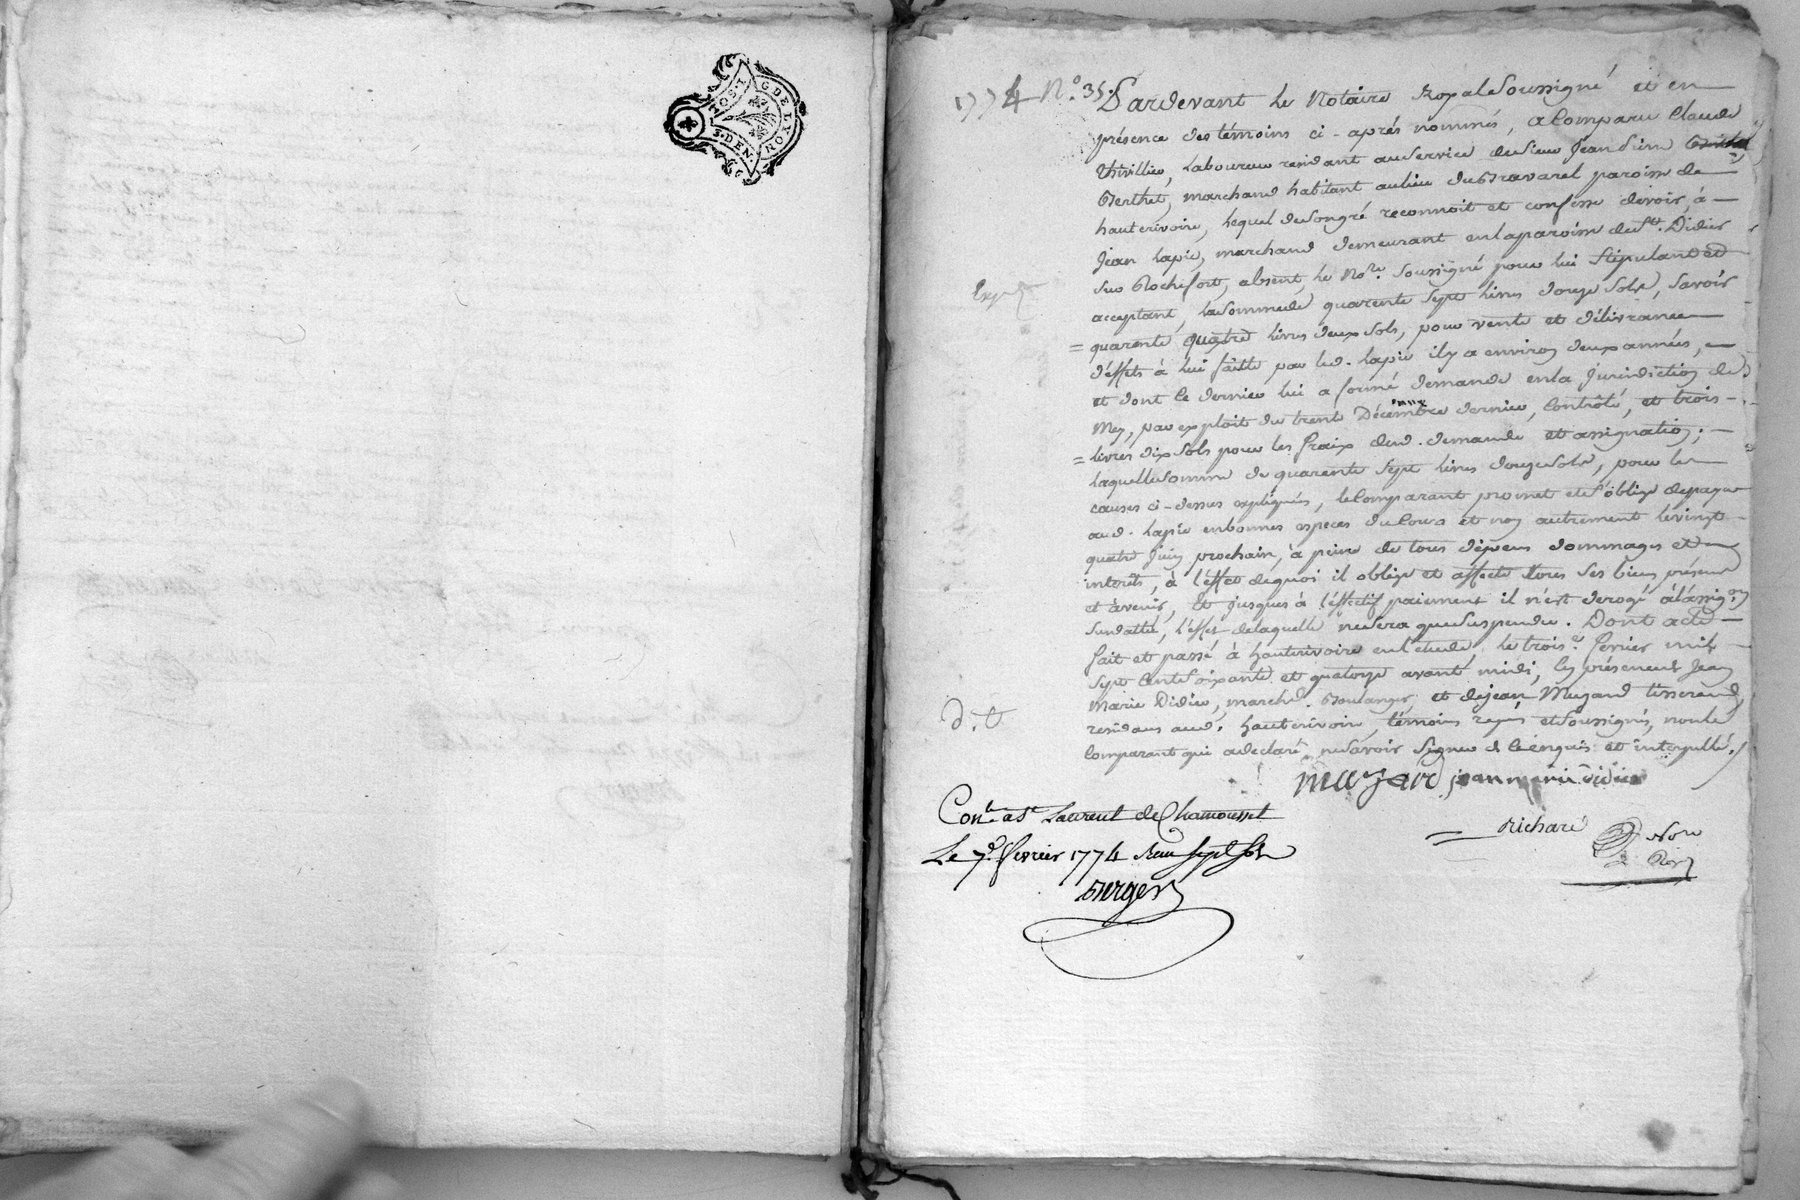 G. DE LYON
S. DEN.
1774 N.° 35.
Pardevant le Notaire Royal Soussigné et en
présence des témoins ci-aprés nommés, a Comparu Claude
thivillier, Laboureur residant au Service du Sieur Jean
Berthet, marchand habitant au lieu du Bravarel paroisse de
hauterivoire, lequel de Songré reconnoit et confesse devoir, à
Jean Lapie, marchand demeurant en la paroisse de St. Didier
Sus Rochefort, absent, le Nore. Soussigné pour lui Stipulant et
Expe.
acceptant, la Somme de quarente Sept livres douze Sols, Savoir
= quarente quatre livres deux Sols, pour vente et délivrance
d'effets à lui faitte par led. Lapie il y a environ deux années,
et dont ce dernier lui a formé demande en la Jurisdiction de
Mey, par exploit du trent Décembre dernier, Contrôlé, et trois
= livres dix Sols pour les fraix de lad. demande et assignation;
Laquelle Somme de quarente Sept livres douze Sols, pour les
causes ci-dessus expliquées, le Comparant promet et S'oblige de payer
aud. Lapie en bonnes especes du Cours et non autrement le vingt
quatre Juin prochain, à peine de tous dépens dommages et
interêts, à l'éffet de quoi il oblige et affecte tous Ses biens présens
et àvenir, Et jusques à l'éffectif paiement il n'est derogé à l'assigon.
Susdatté, l'effet de laquelle ne Sera que Suspendu. Dont acte
fait et passé à hauterivoire en l'etude, le trois. fevrier mil
Sept Cent Soixante et quatorze avant midi, En présence de Jean
Marie Didier, marchd. Boulanger, et de Jean Mugand tisserand,
D. t.
residans aud. hauterivoire, témoins requis et Soussignés, non le
Comparant qui a declaré ne Savoir Signer de ce enquis et interpellé./.
jean marie didier
Conlé. a St Laurent de Chamousset
Le 7e. fevrier 1774 Reçu Sept Sols
Richard Nore
Roy.
Berger